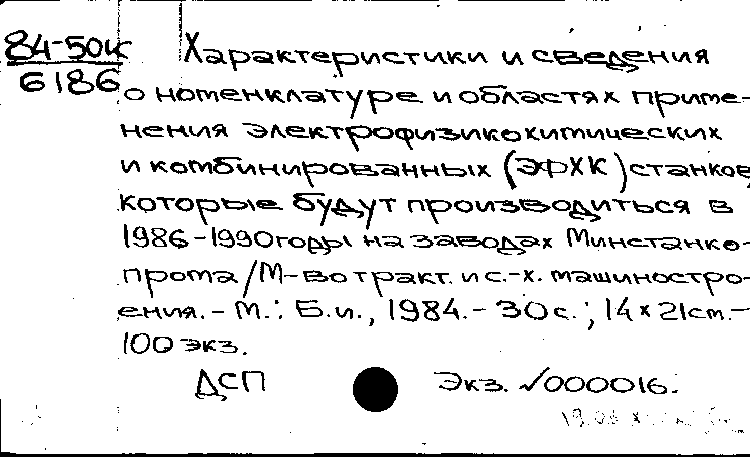 84-50к
6186
Характеристики и сведения
о номенклатуре и областях приме-
нения электрофизикохимических
и комбинированных (ЭФХК) станков,
которые будут производиться в
1986-1990годы на заводах Минстанко-
прома/М-во тракт. и с.-х. машиностро-
ения. - М.: Б.и., 1984. - 30с.; 14×21см.-
100 экз.
ДСП Экз. √000016.